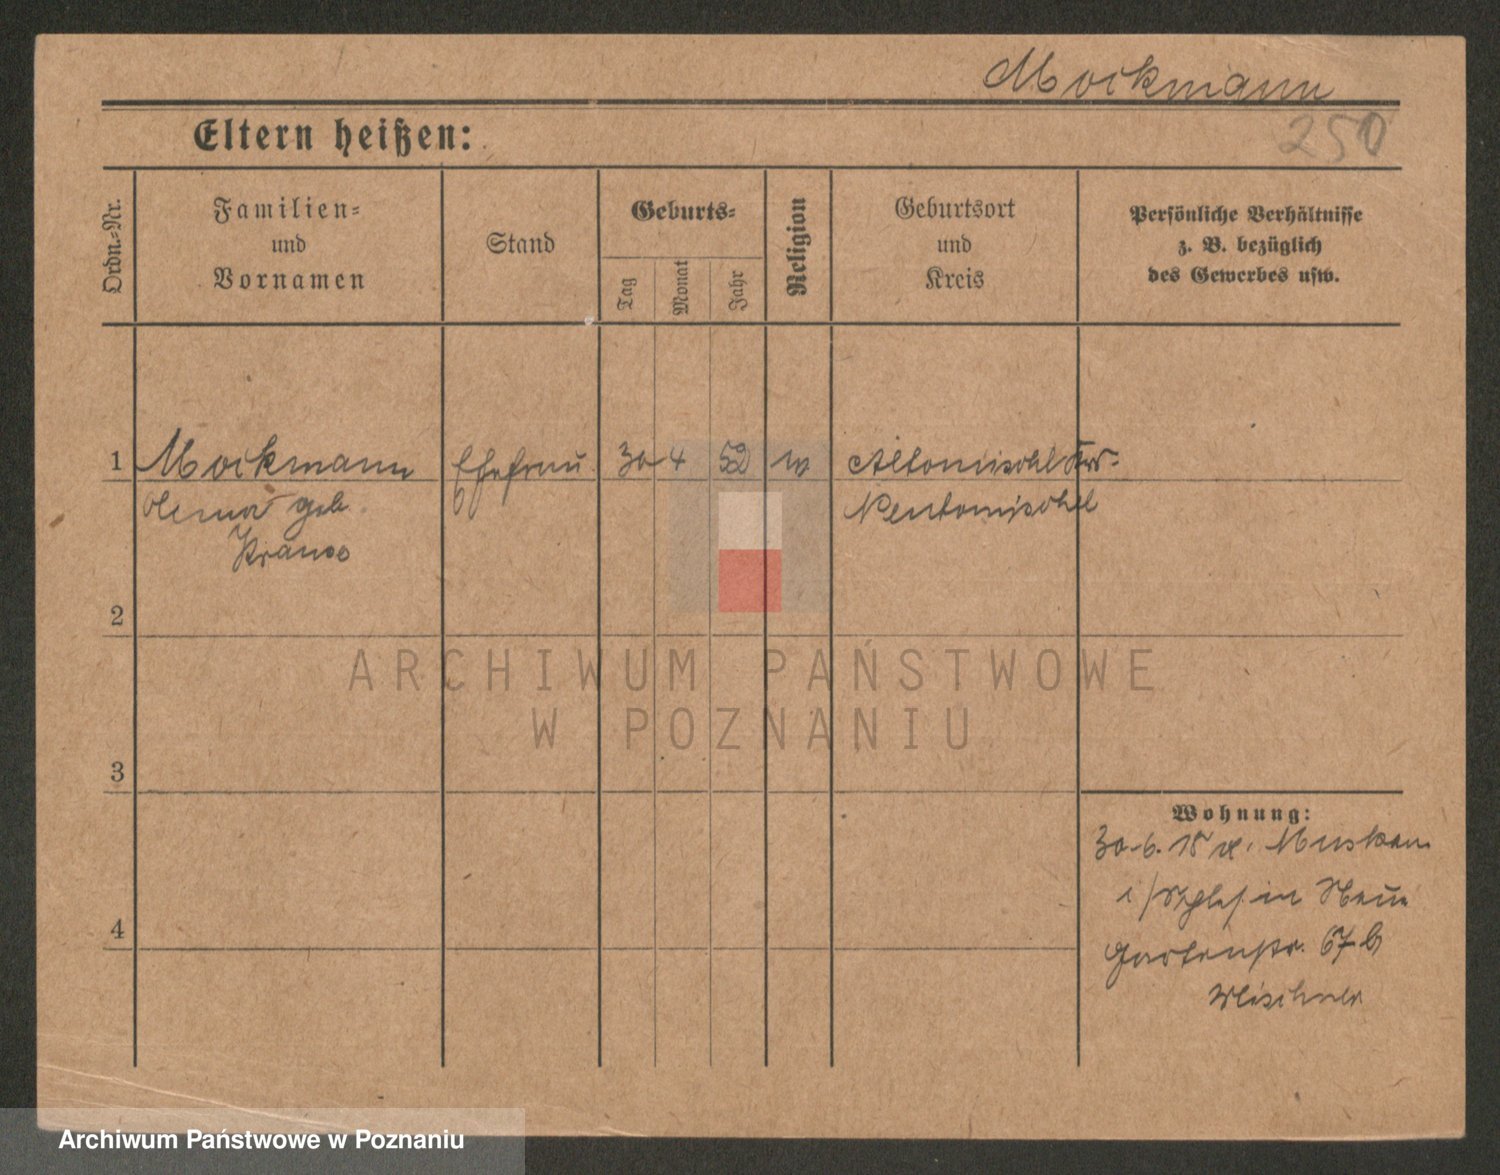 Mockmann
250
Eltern heißen:
Ordn.-Nr.
Familien-
und
Vornamen
Stand
Geburts-
Tag
Monat
Jahr
Religion
Geburtsort
und
Kreis
Persönliche Verhältnisse
z. B. bezüglich
des Gewerbes usw.
1 Mockmann Ehefrau 30 4 52 Altomischel Krs.
geb. Neutomischel
Krause
2
3
4
Wohnung:
30.6.18 Muskau
i/Schles. in Neue
Gartenstr. 67b
ARCHIWUM PAŃSTWOWE
W POZNANIU
Archiwum Państwowe w Poznaniu